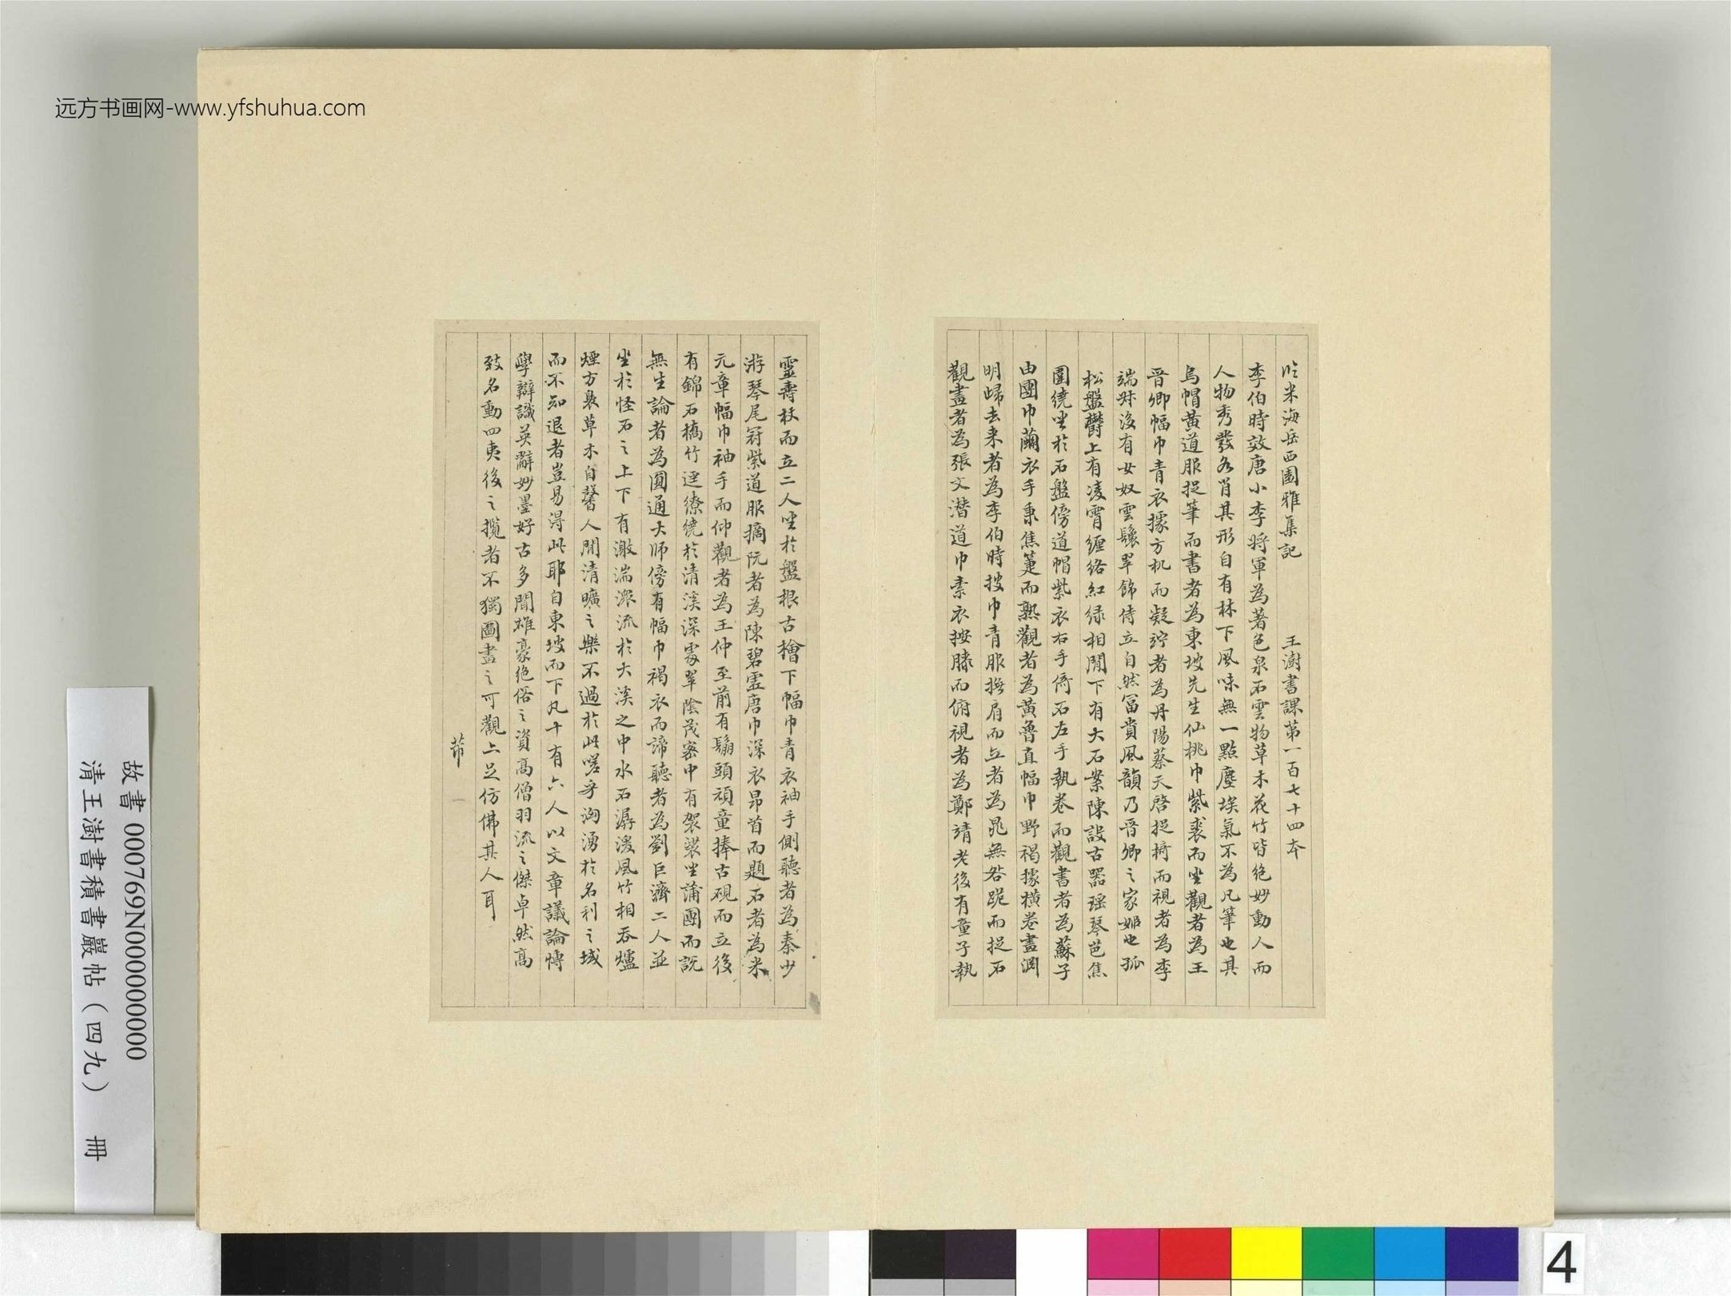 远方书画网-www.yfshuhua.com
临米海岳西園雅集記 王澍書課第一百七十四本
李伯時效唐小李將軍為著色泉石雲物草木花竹皆絶妙動人而
人物秀發各肖其形自有林下風味無一點塵埃氣不為凡筆也其
烏帽黃道服捉筆而書者為東坡先生仙桃巾紫裘而坐觀者為王
晉卿幅巾青衣據方机而凝竚者為丹陽蔡天啓捉椅而視者為李
端叔後有女奴雲鬟翠飾侍立自然富貴風韻乃晉卿之家姬也孤
松盤欝上有凌霄纏絡紅綠相間下有大石案陳設古器瑤琴芭蕉
圍繞坐於石盤傍道帽紫衣右手倚石左手執卷而觀書者為蘇子
由團巾繭衣手秉蕉箑而熟觀者為黃魯直幅巾野褐據橫卷畫淵
明歸去來者為李伯時披巾青服撫肩而立者為晁無咎跪而捉石
觀畫者為張文潛道巾素衣按膝而俯視者為鄭靖老後有童子執
靈壽杖而立二人坐於盤根古檜下幅巾青衣袖手側聽者為秦少
游琴尾冠紫道服摘阮者為陳碧虛唐巾深衣昂首而題石者為米
元章幅巾袖手而仰觀者為王仲至前有鬅頭頑童捧古硯而立後
有錦石橋竹逕繚繞於清溪深處翠陰茂密中有袈裟坐蒲團而説
無生論者為圓通大師傍有幅巾褐衣而諦聽者為劉巨濟二人並
坐於怪石之上下有激湍潨流於大溪之中水石潺湲風竹相吞爐
煙方裊草木自馨人間清曠之樂不過於此嗟乎洶湧於名利之域
而不知退者豈易得此耶自東坡而下凡十有六人以文章議論博
學辯識英辭妙墨好古多聞雄豪絶俗之資高僧羽流之傑卓然高
致名動四夷後之攬者不獨圖畫之可觀亦足仿佛其人耳
芾
故書 000769N000000000
清王澍書積書巖帖（四九） 冊
4